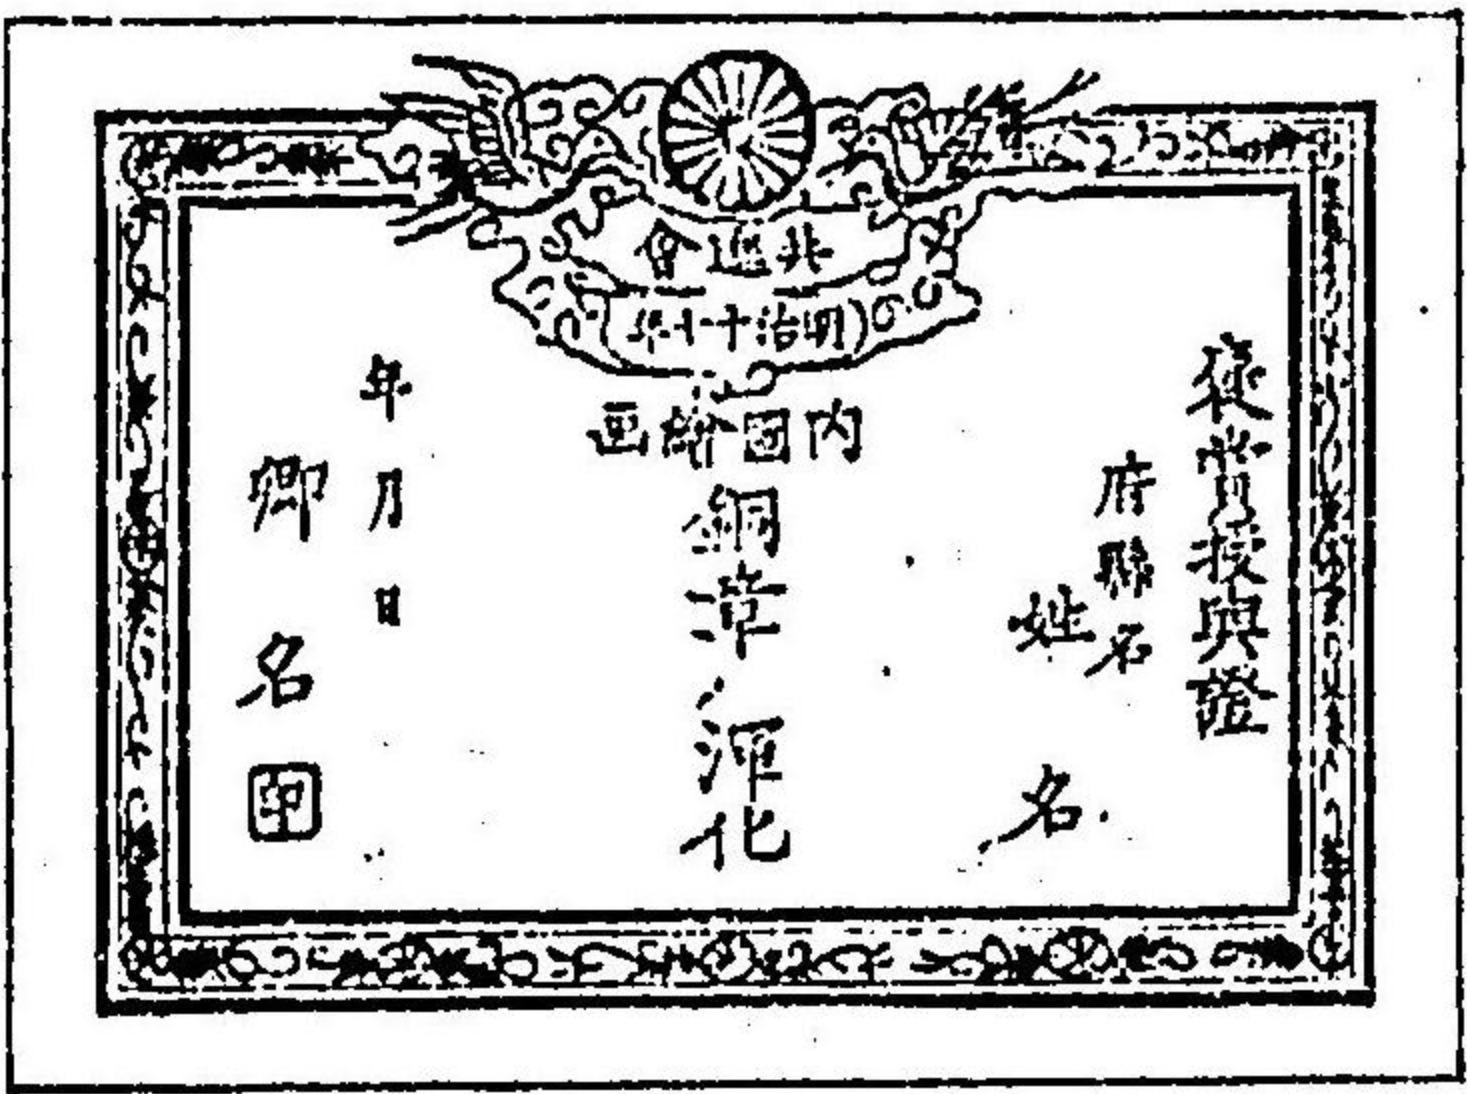 共進會
(明治十七年
内國繪画
褒賞授與證
府縣名
姓名
銅章
年月日
卿名印